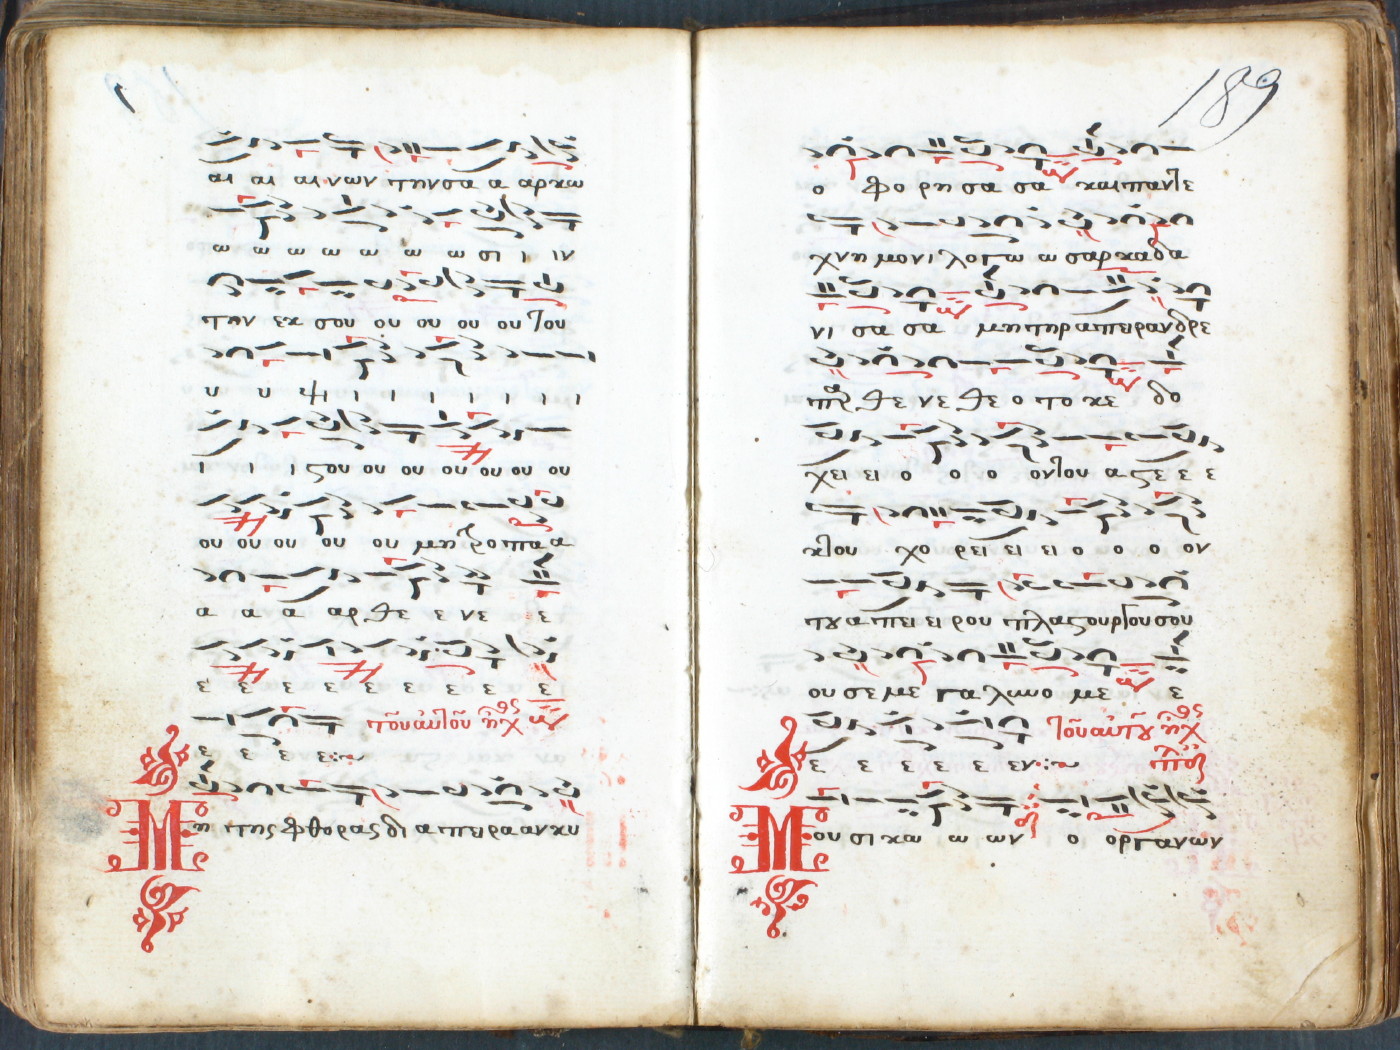 αι αι αι νων την σα α αρκω
ω ω ω ω ω ω ω σι ι ιν
την εκ σου ου ου ου ου του
υ υ ψι ι ι ι ι ι ι
ι ι ι ςου ου ου ου ου ου ου
ου ου ου ου ου μητροπα α
α α α αρ θε ε νε ε
ε ε ε ε ε ε ε ε ε
τοῦ αὐτοῦ ἦχ
ε ε ε ε
Μη της φθορας δι α πειρα αν κυ
189
ο φο ρη σα σα και παντε
χνη μονι λογω ω σαρκα δα
νι σα σα μητηρ απειρανδρε
παρ θε νε θε ο το κε δο
χει ει ο ο ο ον του α ςε ε ε
κτου χο ρει ει ει ο ο ο ον
του α πει ει ρου πλαςουργου σου
ου σε με γα λυνο με ε
ε ε ε ε ε εν τοῦ αὐτοῦ ἦχ
Μου σι κω ω ων ο οργανων